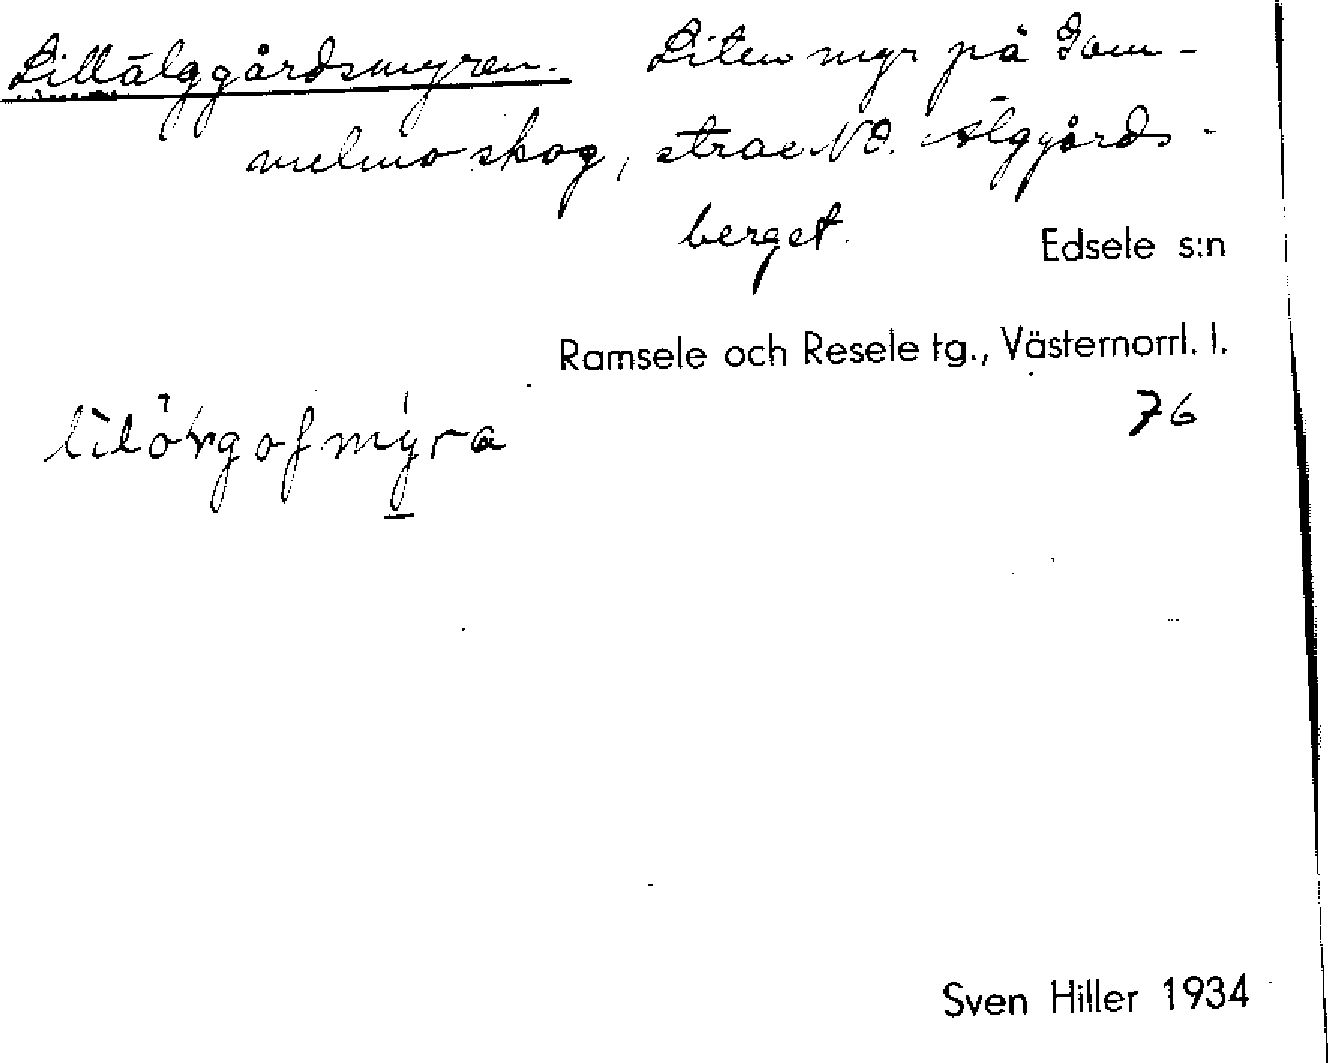 Lillälggårdsmyren. Liten myr på Gam-
melmo skog, strax NO. Älggårds-
berget.
Edsele s:n
Ramsele och Resele tg., Västernorrl. l.
76
Sven Hiller 1934